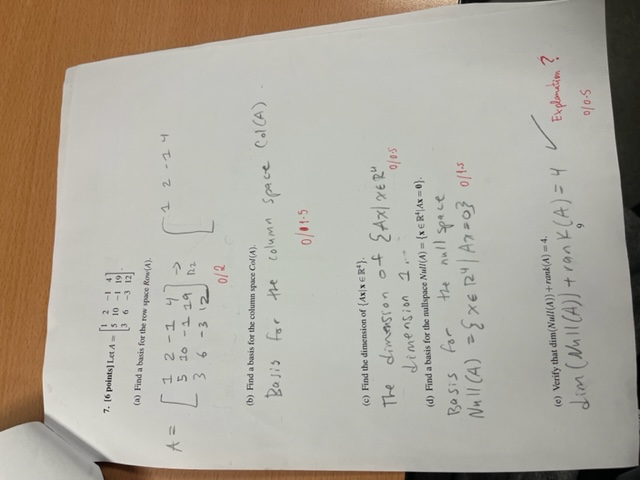 7. [6 points] Let A = [1 2 -1 4
5 10 -1 19
3 6 -3 12].
(a) Find a basis for the row space Row(A).
A = [1 2 -1 4
5 10 -1 19
3 6 -3 12] → [1 2 -1 4
R2
0/2
(b) Find a basis for the column space Col(A).
Basis for the column space Col(A).
0/1.5
(c) Find the dimension of {Ax|x∈R⁴}.
The dimension of {Ax|x∈R⁴
dimension 1...
0/0.5
(d) Find a basis for the nullspace Null(A) = {x∈R⁴|Ax=0}.
Basis for the null space
Null(A) = {x∈R⁴|Ax=0}
0/1.5
(e) Verify that dim(Null(A))+rank(A)=4.
dim(Null(A))+rank(A)=4 ✓
Explanation?
0/0.5
9